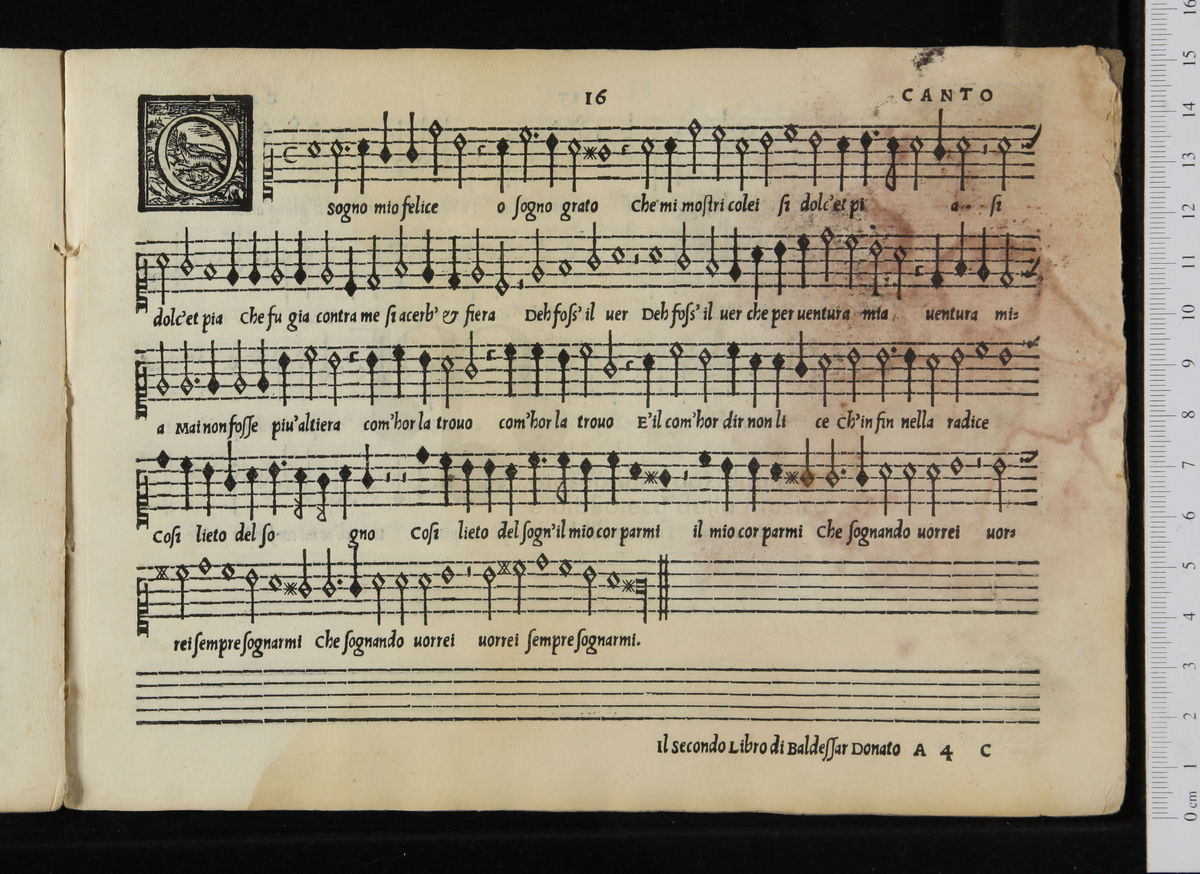 16 CANTO
O sogno mio felice o sogno grato Che mi moſtri colei ſi dolc'et pi a ſi
dolc'et pia Che fu gia contra me ſi acerb' & fiera Deh foſs' il uer Deh foſs' il uer che per uentura mia uentura mi-
a Mai non foſſe piu'altiera com'hor la trouo com'hor la trouo E'il com'hor dir non li ce Ch'in fin nella radice
Coſi lieto del ſo gno Coſi lieto del ſogn'il mio cor parmi il mio cor parmi Che ſognando uorrei uor-
rei ſempre ſognarmi Che ſognando uorrei uorrei ſempre ſognarmi.
Il Secondo Libro di Baldeſſar Donato A 4 C
0 cm 1 2 3 4 5 6 7 8 9 10 11 12 13 14 15 16